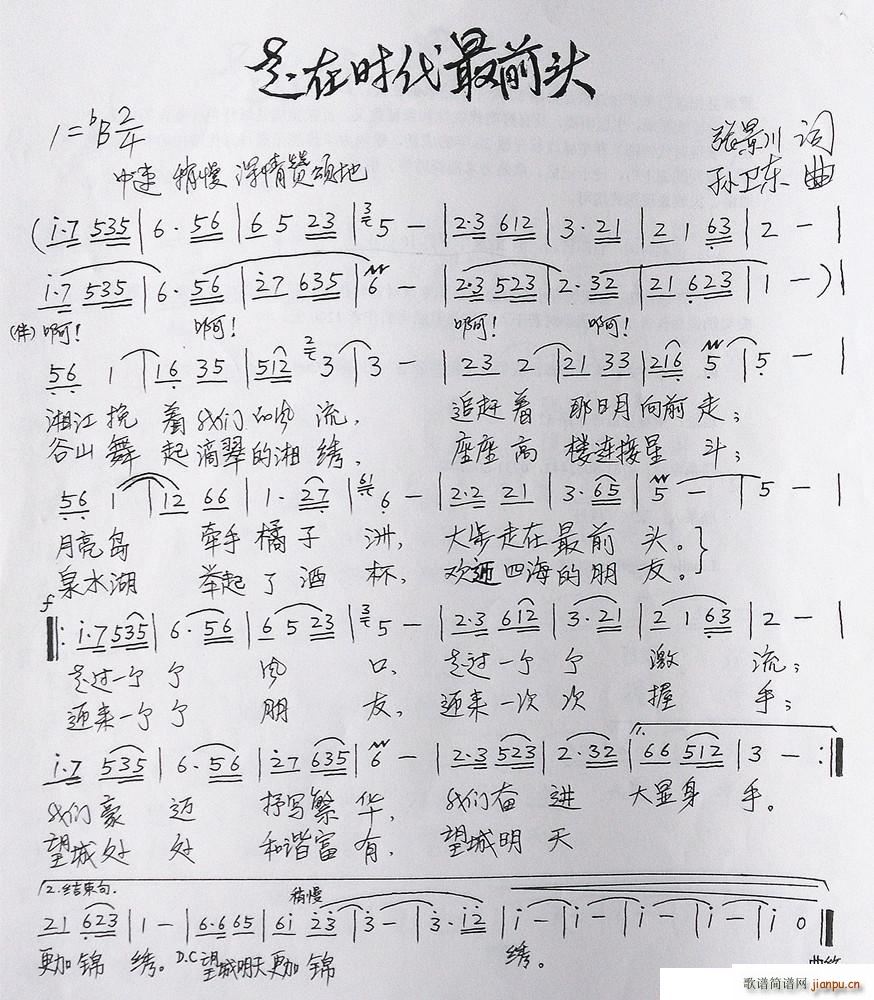 走在时代最前头
1=♭B 2/4
张景川 词
中速 稍慢 深情赞颂地
孙卫东 曲
(i·7 535 | 6· 56 | 6 5 23 | 3 5 - | 2·3 612 | 3· 21 | 2 1 63 | 2 - |
i·7 535 | 6· 56 | 27 635 | 6 - | 2·3 523 | 2· 32 | 21 623 | 1 - ) |
(伴) 啊! 啊! 啊! 啊!
56 1 | 16 35 | 512 2 3 | 3 - | 23 2 | 21 33 | 216 5 | 5 - |
湘江挽着我们的风流, 追赶着那日月向前走;
谷山舞起滴翠的湘绣, 座座高楼连接星斗;
56 1 | 12 66 | 1· 27 | 61 6 - | 2·2 21 | 3· 65 | 5 - | 5 - |
月亮岛牵手橘子洲, 大步走在最前头。
泉水湖举起了酒杯, 欢迎四海的朋友。
f
|: i·7 535 | 6· 56 | 6 5 23 | 3 5 - | 2·3 612 | 3· 21 | 2 1 63 | 2 - |
走过一个个风口, 走过一个个激流;
迎来一个个朋友, 迎来一次次握手;
1.
i·7 535 | 6· 56 | 27 635 | 6 - | 2·3 523 | 2· 32 | 66 512 | 3 - :|
我们豪迈抒写繁华, 我们奋进大显身手。
望城处处和谐富有, 望城明天
2.结束句. 稍慢
21 623 | 1 - | 6·6 65 | 6i 23 | 3 - | 3· i2 | i - | i - | i - | i - | i 0 |
更加锦绣。 D.C 望城明天更加锦绣。
曲终
歌谱简谱网 jianpu.cn